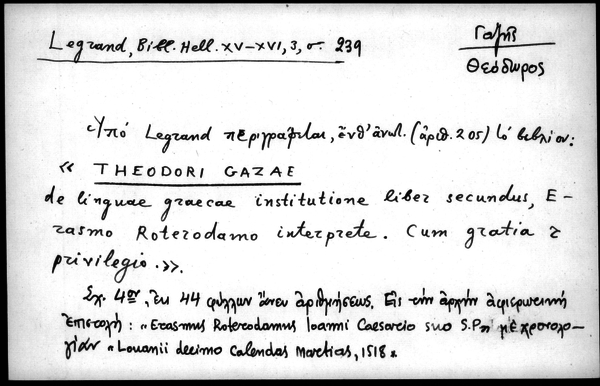 Legrand, Bibl. Hell. XV–XVI, 3, σ. 239
Γαζῆς
Θεόδωρος
Ὑπό Legrand περιγράφεται, ἔνθ' ἀνωτ. (ἀριθ. 205) τό βιβλίον:
« THEODORI GAZAE
de linguae graecae institutione liber secundus, E-
rasmo Roterodamo interprete. Cum gratia &
privilegio.».
Σχ. 4ον, ἐκ 44 φύλλων ἄνευ ἀριθμήσεως. Εἰς τήν ἀρχήν ἀφιερωτική
ἐπιστολή: «Erasmus Roterodamus Ioanni Caesareio suo S.P.» μέ χρονολο-
γίαν «Louanii decimo Calendas Martias, 1518».